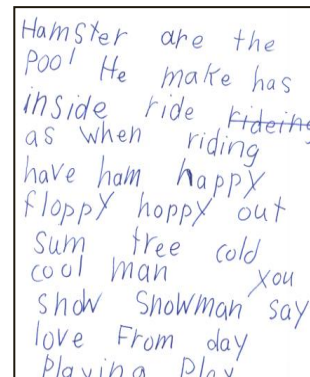 Hamster are the
Pool He make has
inside ride rideing
as when riding
have ham happy
floppy hoppy out
sum tree cold
cool man you
show snowman say
love From day
Playing Play